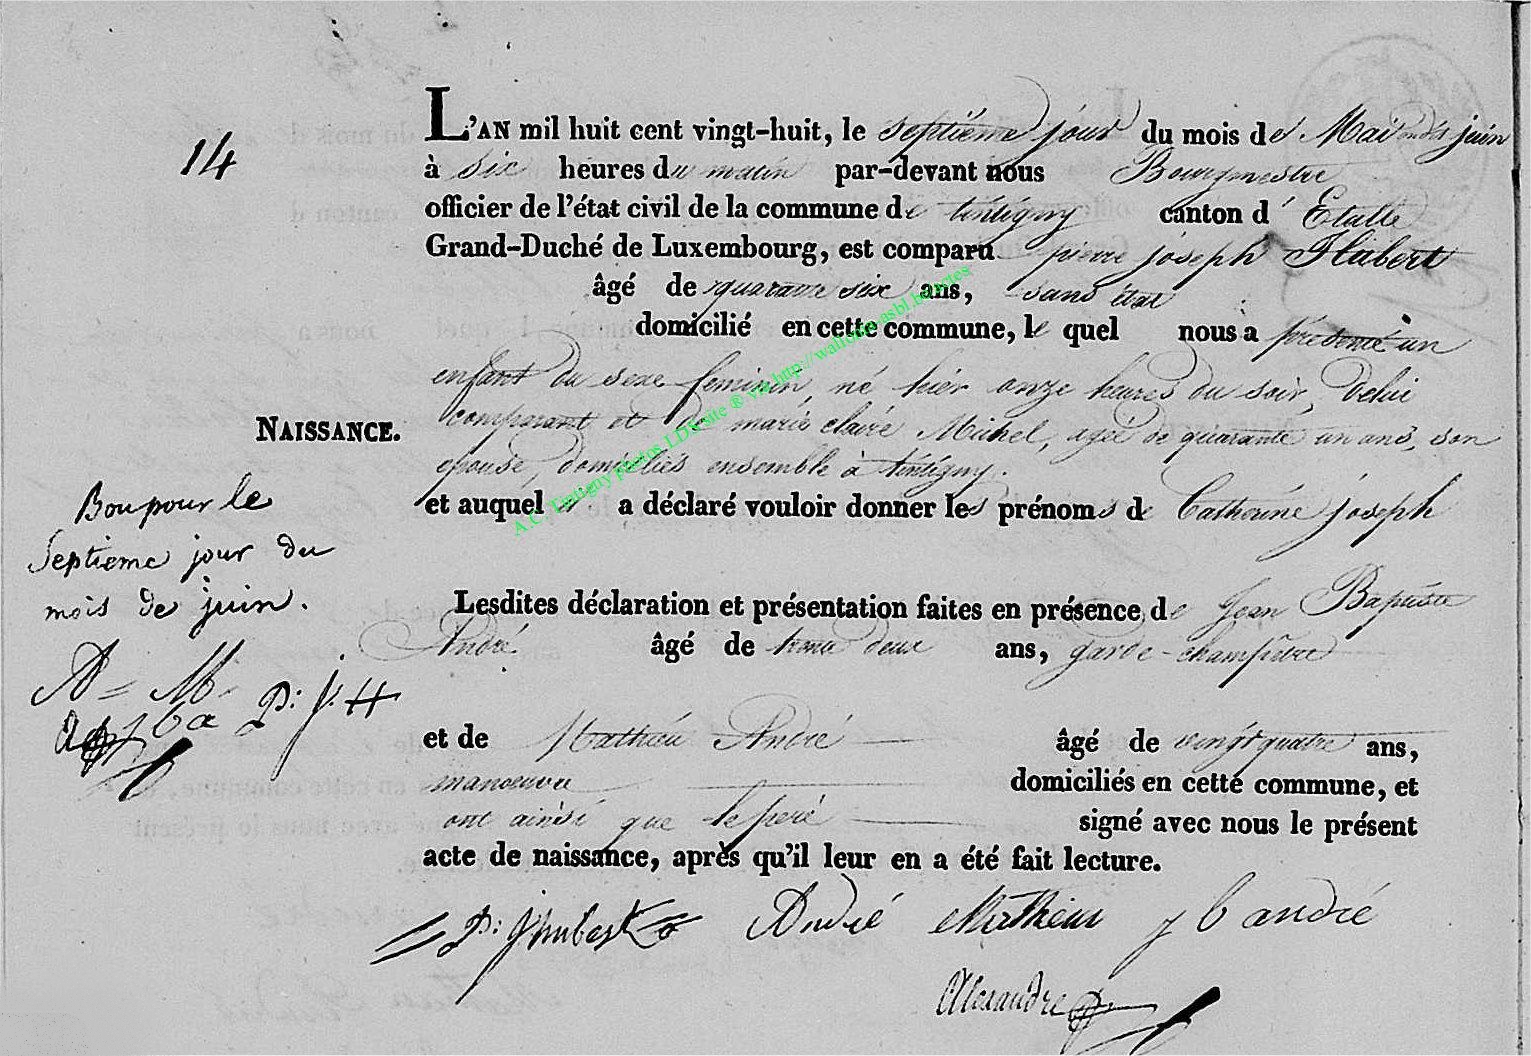 14
L'AN mil huit cent vingt-huit, le septiéme jour du mois de Mai juin
à six heures du matin par-devant nous Bourgmestre
officier de l'état civil de la commune de tintigny canton d' Etalle
Grand-Duché de Luxembourg, est comparu pierre joseph Hubert
âgé de quarante six ans, sans état
domicilié en cette commune, le quel nous a présenté un
enfant du sexe feminin, né hièr onze heures du soir, delui
comparant et de marie claire Michel, agée de quarante un ans, son
epouse, domiciliés ensemble à tintigny.
NAISSANCE.
et auquel il a déclaré vouloir donner les prénoms de Catherine joseph
Bon pour le
Septieme jour du
mois de juin.
A = M.
P: j. H
Lesdites déclaration et présentation faites en présence de Jean Baptiste
André âgé de trente deux ans, garde-champêtre
et de Mathieu André âgé de vingt quatre ans,
manœuvre domiciliés en cette commune, et
ont ainsi que le pere signé avec nous le présent
acte de naissance, après qu'il leur en a été fait lecture.
P: j hubert André Mathieu j b andré
Alexandre
A.C. Tintigny photos LDS site ® via http://wallonia-asbl.be/actes